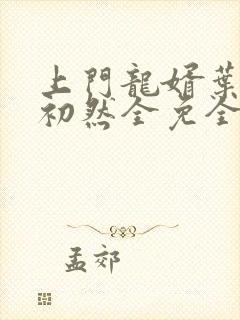 上門龍婿葉
初然全免全
孟郊